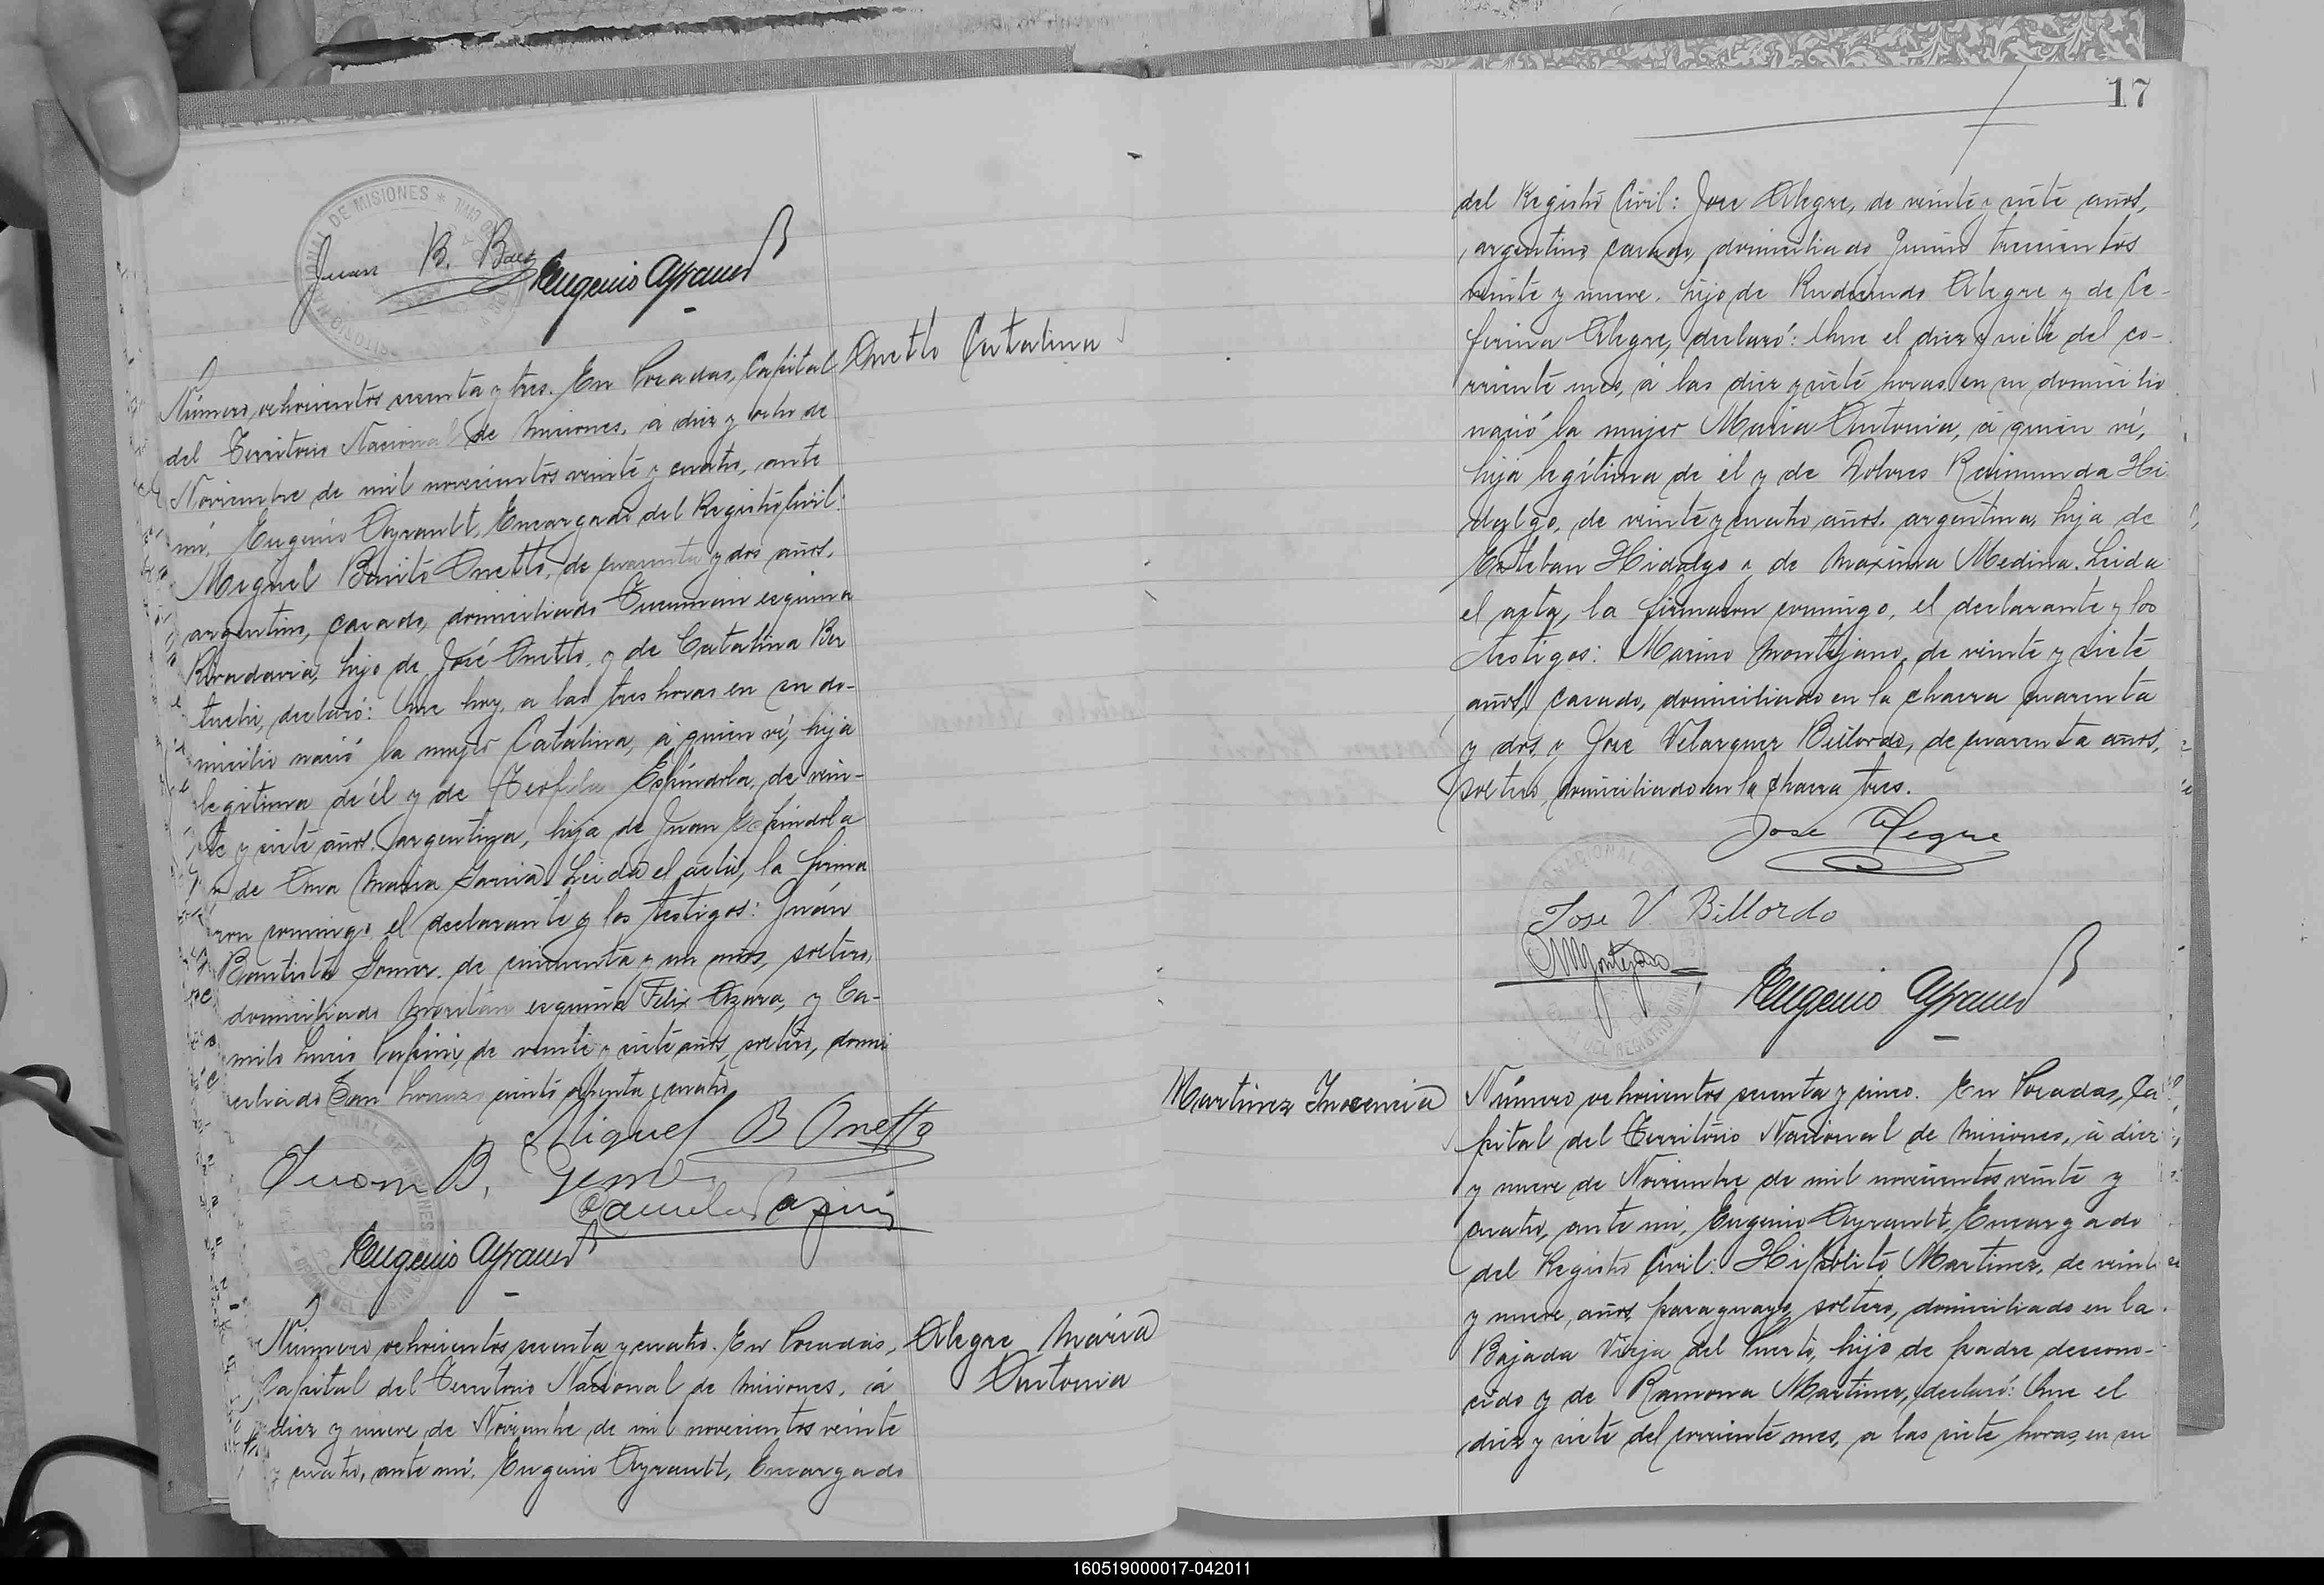 Juan B. Baez Eugenio Ayrault
Onetto Catalina
Número ochocientos sesenta y tres. En Posadas, Capital
del Territorio Nacional de Misiones, á diez y ocho de
Noviembre de mil novecientos veinte y cuatro, ante
mí, Eugenio Ayrault, Encargado del Registro Civil:
Miguel Benito Onetto, de cuarenta y dos años,
argentino, casado, domiciliado Tucumán esquina
Rivadavia, hijo de José Onetto, y de Catalina Ber
tuchi, declaró: Que hoy, a las tres horas en su do-
micilio nació la mujer Catalina, á quien ví, hija
legítima de él y de Teofila Espíndola, de vein-
te y siete años, argentina, hija de Juan Espíndola
y de Ana María García. Leida el acta, la firma
ron conmigo, el declarante y los testigos: Juán
Bautista Gomez, de cincuenta y un años, soltero,
domiciliado esquina Felix Azara, y Ca-
milo Lucio Capini, de veinte y siete años, soltero, domi
ciliado San Lorenzo ciento ochenta y cuatro.
Miguel B Onetto
Juan B. Gomez
Camilo Capini
Eugenio Ayrault
Alegre María
Antonia
Número ochocientos sesenta y cuatro. En Posadas,
Capital del Territorio Nacional de Misiones, á
diez y nueve de Noviembre de mil novecientos veinte
y cuatro, ante mí, Eugenio Ayrault, Encargado
17
del Registro Civil: Jose Alegre, de veinte y siete años,
argentino, casado, domiciliado Junin trescientos
veinte y nueve, hijo de Rudecindo Alegre y de Ce-
ferina Alegre, declaró: Que el diez y siete del co-
rriente mes, á las diez y siete horas, en su domicilio
nació la mujer Maria Antonia, á quien ví,
hija legítima de él y de Dolores Reimunda Hi
dalgo, de veinte y cuatro años, argentina, hija de
Esteban Hidalgo y de Maxima Medina. Leida
el acta, la firmaron conmigo, el declarante y los
testigos: Marino Montejano, de veinte y siete
años, casado, domiciliado en la chacra cuarenta
y dos, y Jose Velazquez Billordo, de cuarenta años,
soltero, domiciliado en la chacra tres.
Jose Alegre
Jose V. Billordo
M Montejano
Eugenio Ayrault
Martinez Inocencia
Número ochocientos sesenta y cinco. En Posadas, Ca
pital del Territorio Nacional de Misiones, á diez
y nueve de Noviembre de mil novecientos veinte y
cuatro, ante mí, Eugenio Ayrault, Encargado
del Registro Civil: Hipólito Martinez, de veinte
y nueve años, paraguayo, soltero, domiciliado en la
Bajada Vieja del Puerto, hijo de padre descono-
cido y de Ramona Martinez, declaró: Que el
diez y siete del corriente mes, a las siete horas, en su
160519000017-042011